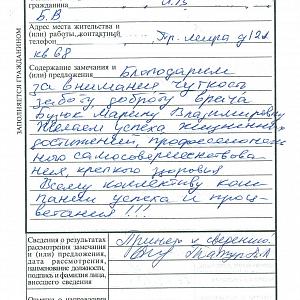 гражданина
Б.В
Адрес места жительства и
(или) работы, контактный
телефон Пр. мира д 12А
кв 68
ЗАПОЛНЯЕТСЯ ГРАЖДАНИНОМ
Содержание замечания и
(или) предложения Благодарим
за внимания чуткость
заботу доброту врача
Буюк Марину Владимировну
Желаем успеха жизненных
достижений, профессиональ
ного самосовершенствова
ния, крепкого здоровья
Всему коллективу ком
пании успеха и проц
ветания !!!
Сведения о результатах
рассмотрения замечания
(или) предложения,
дата рассмотрения,
наименование должности,
подпись и фамилия лица,
внесшего сведения
Принято к сведению.
Отметка о направлении